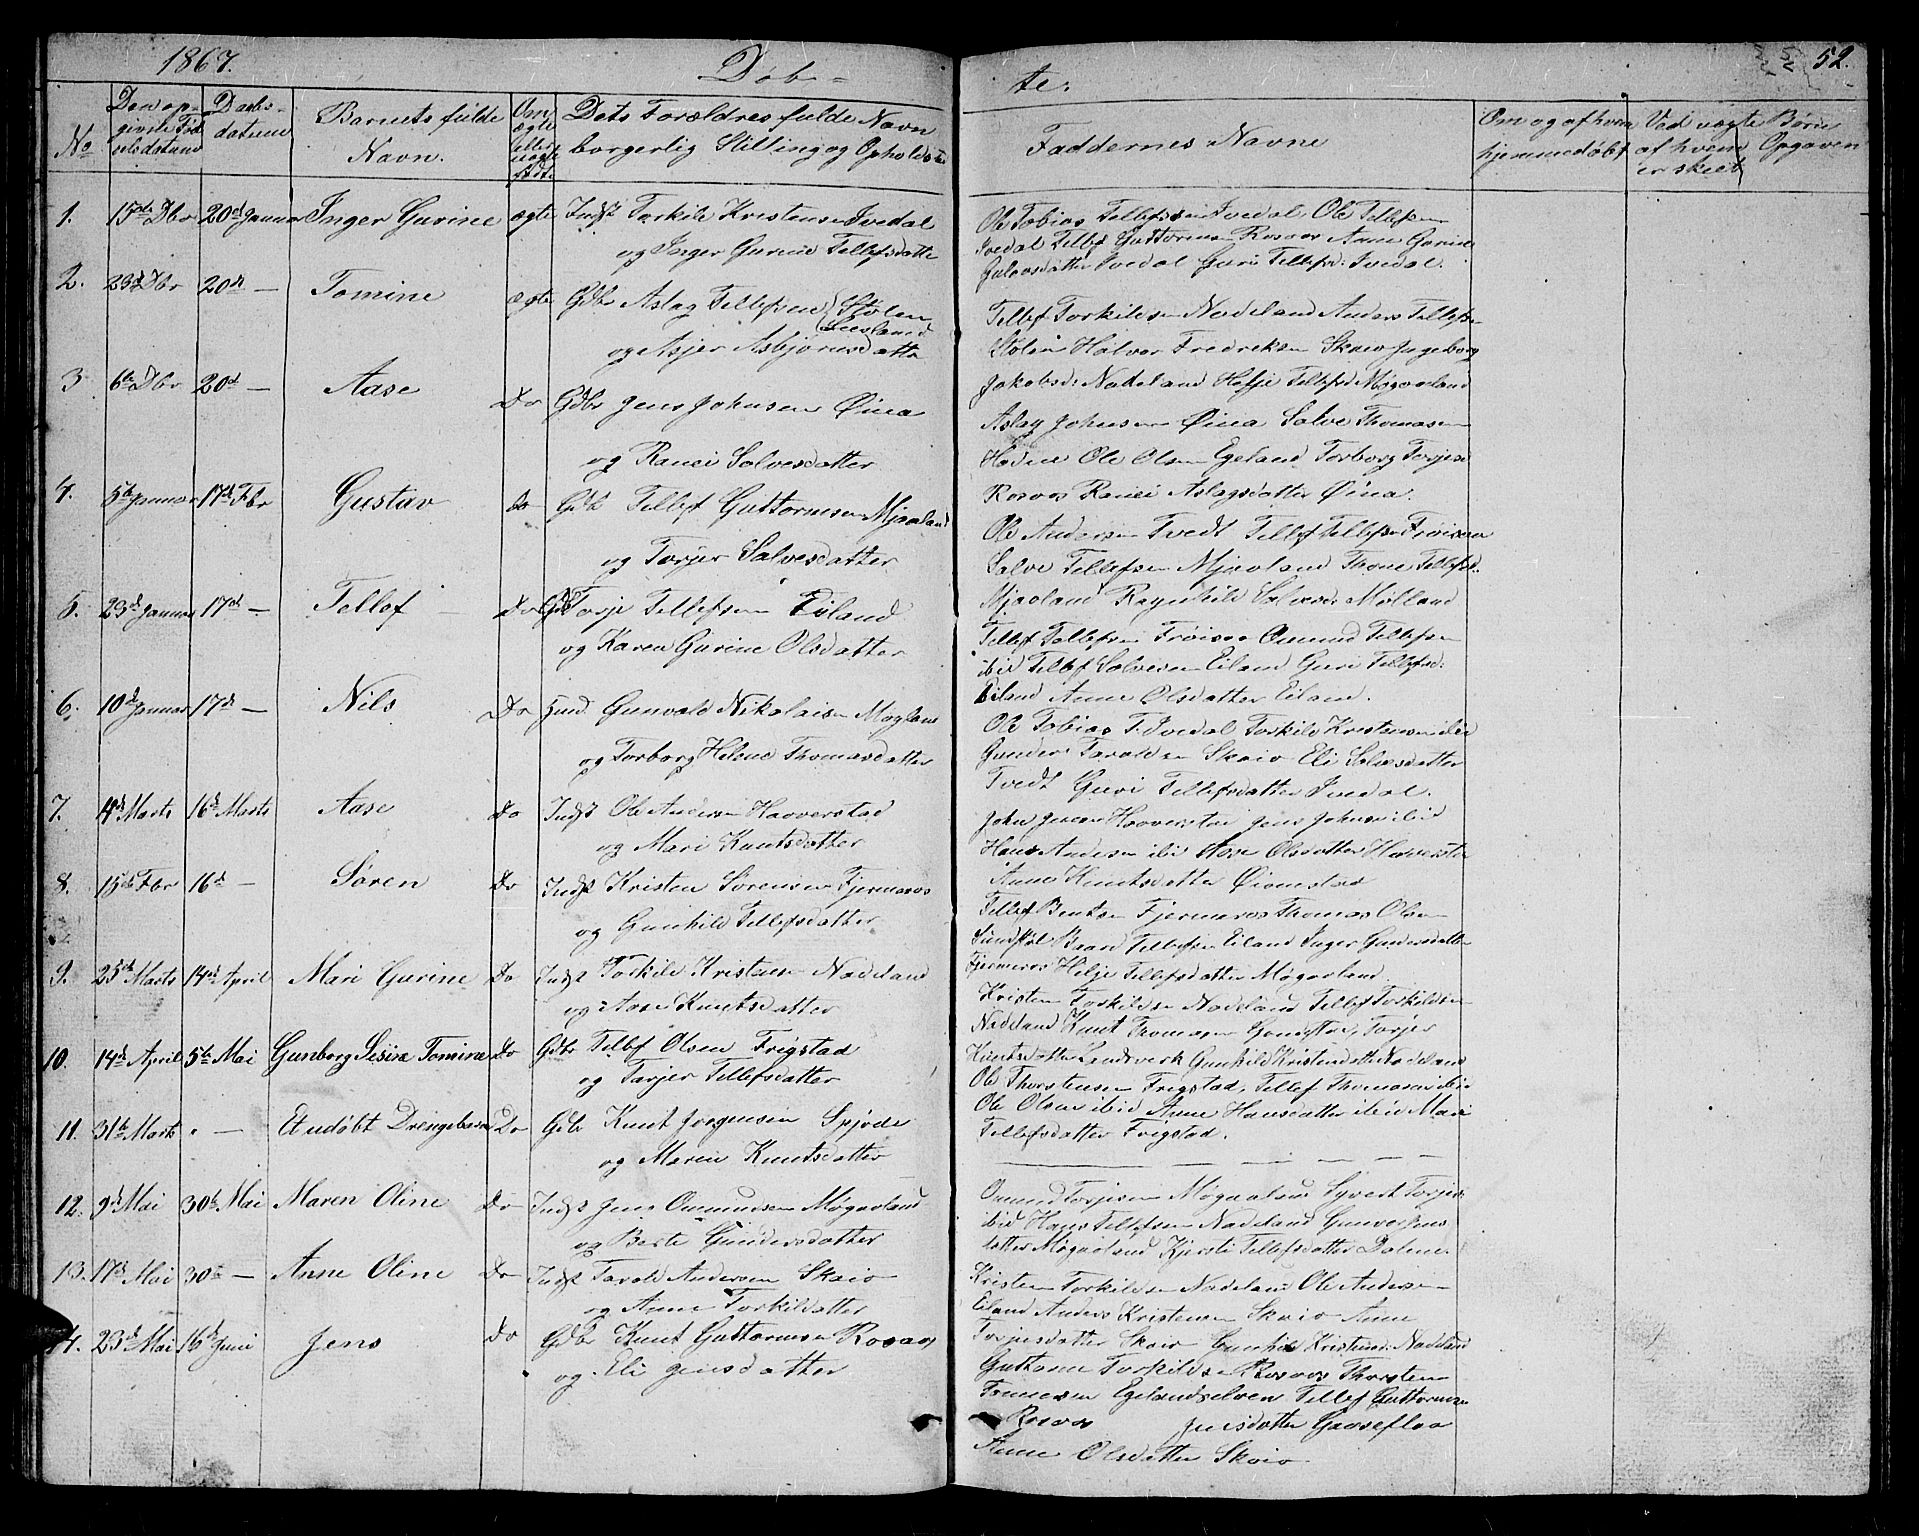 1867.
Døb-
te.
52.
No
Den op-
givete Fød-
selsdatum
Daabs-
datum
Barnets fulde
Navn.
Om
ægte
eller
uægte
født.
Dets Forældres fulde Navn
borgerlig Stilling og Opholds
Faddernes Navne
Om og af hvem
hjemmedøbt
Ved uægte Børn
af hvem Opgaven
er skeet
1. 15de Dbr 20de Januar Inger Gurine ægte Indst Torkild Kristensen Ivedal
og Inger Gurine Tellefsdatte
2. 23d Dbr 20de — Tomine ægte Gdbr Aslag Tellefsen Stolen
Liesland
og Asjer Asbjørnsdatte
3 6te Dbr 20de — Aase Do Gdbr Jens Johnsen Øina
og Ranei Salvesdatter
4. 5te Januar 17de Fbr Gustav do Gdb Tellef Guttormsen Mjaaland
og Torjer Salvesdatter
5. 23d Januar 17de — Tellef Do Gdb Torje Tellefsen Eiland
og Karen Gurine Olsdatter
6. 10de Januar 17de — Nils Do Gunvald Nikolaisen Mogland
og Torborg Helene Thomasdatter
7. 4de Marts 16de Marts Aase Do Indst Ole Andersen Haaverstad
og Mari Knutsdatter
8. 15de Fbr 16de — Søren Do Indst Kristen Sørensen Fjermeros
og Gunhild Tellefsdatter
9. 25de Marts 14de April Mari Gurine Do Indst Torkild Kristensen Nadeland
og Aase Knutsdatter
10. 14de April 5te Mai Gunborg Sesine Tomine Do Gdbr Tellef Olsen Frigstad
og Tarjer Tellefsdatter
11. 31te Marts " — Et udøbt Drengebarn Do Gdb Knut Jorgensen Spjode
og Maren Knutsdatter
12. 9de Mai 30de Mai Maren Oline Do Indst Jens Omundsen Møgaoland
og Berte Gundersdatter
13. 17de Mai 30te — Anne Oline Do Indst Tarald Andersen Skaio
og Anne Torkildatter
14. 23de Mai 16de Juni Jens Do Gdbr Knut Guttormsen Rosaas
og Eli Jensdatter
Ole Tobias Tellefsen Ivedal Ole Tellefsen
Ivedal Tellef Guttormsen Rosaas Anne Gurine
Gulovsdatter Ivedal Guri Tellefsd: Ivedal.
Tellef Torkildsen Nadeland Anders Tellefsen
Stolen Halvor Fredriksen Skaio Ingeborg
Jakobsd: Nadeland Helje Tellefsd Møgaaland
Aslag Johnsen Øina Salve Thomasen
Ole Olsen Egeland Torborg Torjesd
Rosaas Ranei Aslagsdatter Øina.
Ole Andersen Tvedt Tellef Tellefsen Frøisaa
Salve Tellefsen Mjaaland Thone Tellefsd:
Mjaaland Ragnhild Salvesd: Mølland
Tellef Tellefsen Frøisaa Omund Tellefsen
ibid Tellef Salvesen Eiland Guri Tellefsd:
Eiland Anne Olsdatter Eiland.
Ole Tobias T. Ivedal Torkild Kristensen ibid
Gunder Taraldsen Skaio Eli Salvesdatter
Tvedt Guri Tellefsdatter Ivedal.
John Jensen Haaverstad Jens Johnsen ibid
Hans Andersen ibid Aase Olsdatter Haaverstad
Anne Knutsdatter Øiomstad
Tellef Bentsen Fjermeros Thomas Olsen
Sundstøl Baard Tellefsen Eiland Inger Gundersdatter
Fjermeros Helje Tellefsdatter Møgaaland.
Kristen Torkildsen Nadeland Tellef Torkildsen
Nadeland Knut Thomasen Torjer
Knutsdatter Landsverk Gunhild Kristensdatt Nadeland
Ole Thorstensen Frigstad, Tellef Thomasen ibid
Ole Olsen ibid Anne Hansdatter ibid Mari
Tellefsdatter Frigstad.
— — — — — — — —
Omund Torjesen Møgaaland Syvert Torjes:
ibid Hans Tellefsen Nadeland Gunvor Jens
datter Møgaaland Kjersti Tellefsdatter Dalene.
Kristen Torkildsen Nadeland Ole Andersen
Eiland Anders Kristensen Skaio Anne
Torjusdatter Skaio Gunhild Kristensd: Nadeland
Guttorm Torkildsen Rosaas Thorsten
Tonnesen Egelandselven Tellef Guttormsen
Rosaas Jensdatter Gaaseflaa
Anne Olsdatter Skaio.